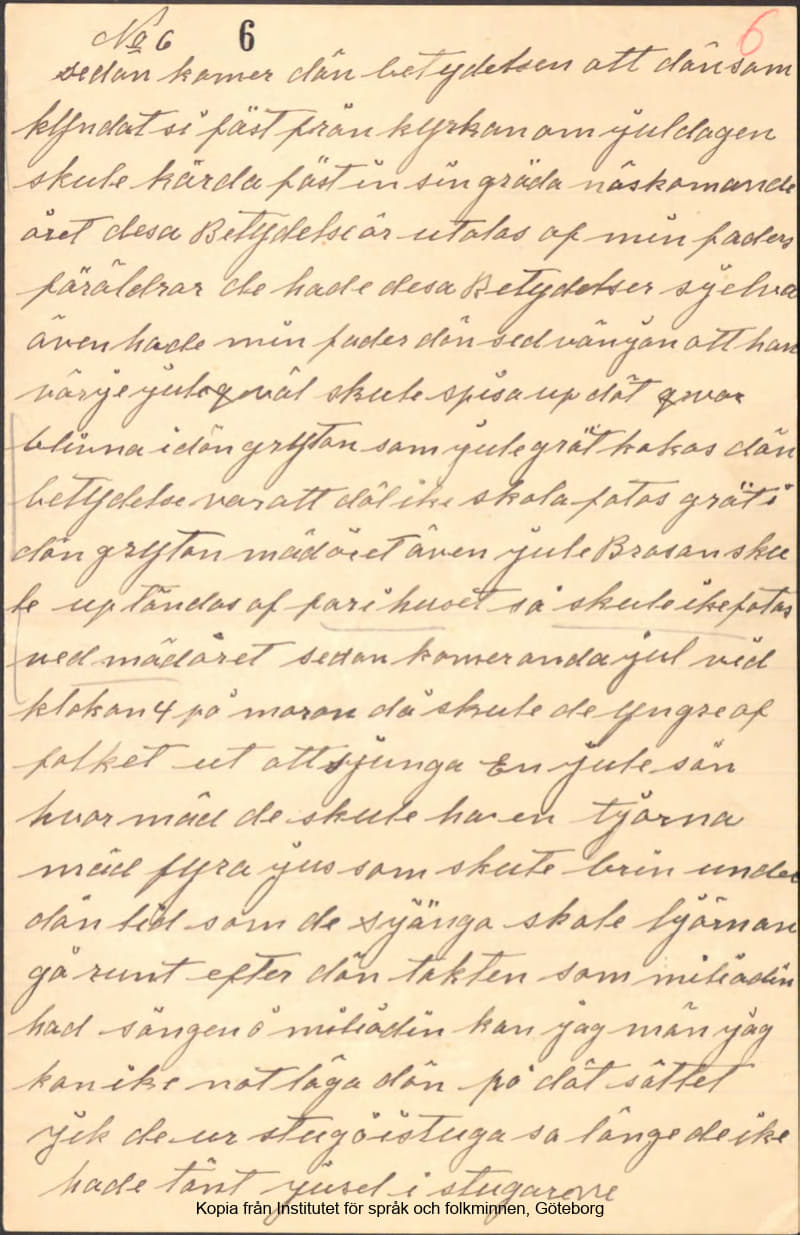 No 6 6 6
sedan komer dän betydelsen att dän som
kyndat si fäst från kyrkan om juldagen
skule kärda fäst in sin gräda näskomande
året desa Betydelser utalas af min faders
föräldrar de hade desa Betydelser sjelva
även hade min fader dän sedvänjan att han
värje juleqväl skule spisa up dät qvar
blivna i dän grytan som julegröt kokas dän
betydelse var att däl ike skola fatas gröt i
dän grytan mädåret även jule Brasan sku
le uptändas af far i huset så skule ike fatas
ved mädåret sedan komer anda jul vid
klokan 4 på moron då skule de yngre af
folket ut att sjunga En jule sån
hvor mäd de skule ha en tjärna
mäd fyra jus som skule brin under
dän tid som de sjänga skole tjärnan
gå runt efter dän takten som miliådin
had sången å miliådin kan jag män jag
kan ike notläga dän på dät sättet
jik de ur stugå i stuga så länge de ike
hade tänt jusd i stugarne
Kopia från Institutet för språk och folkminnen, Göteborg